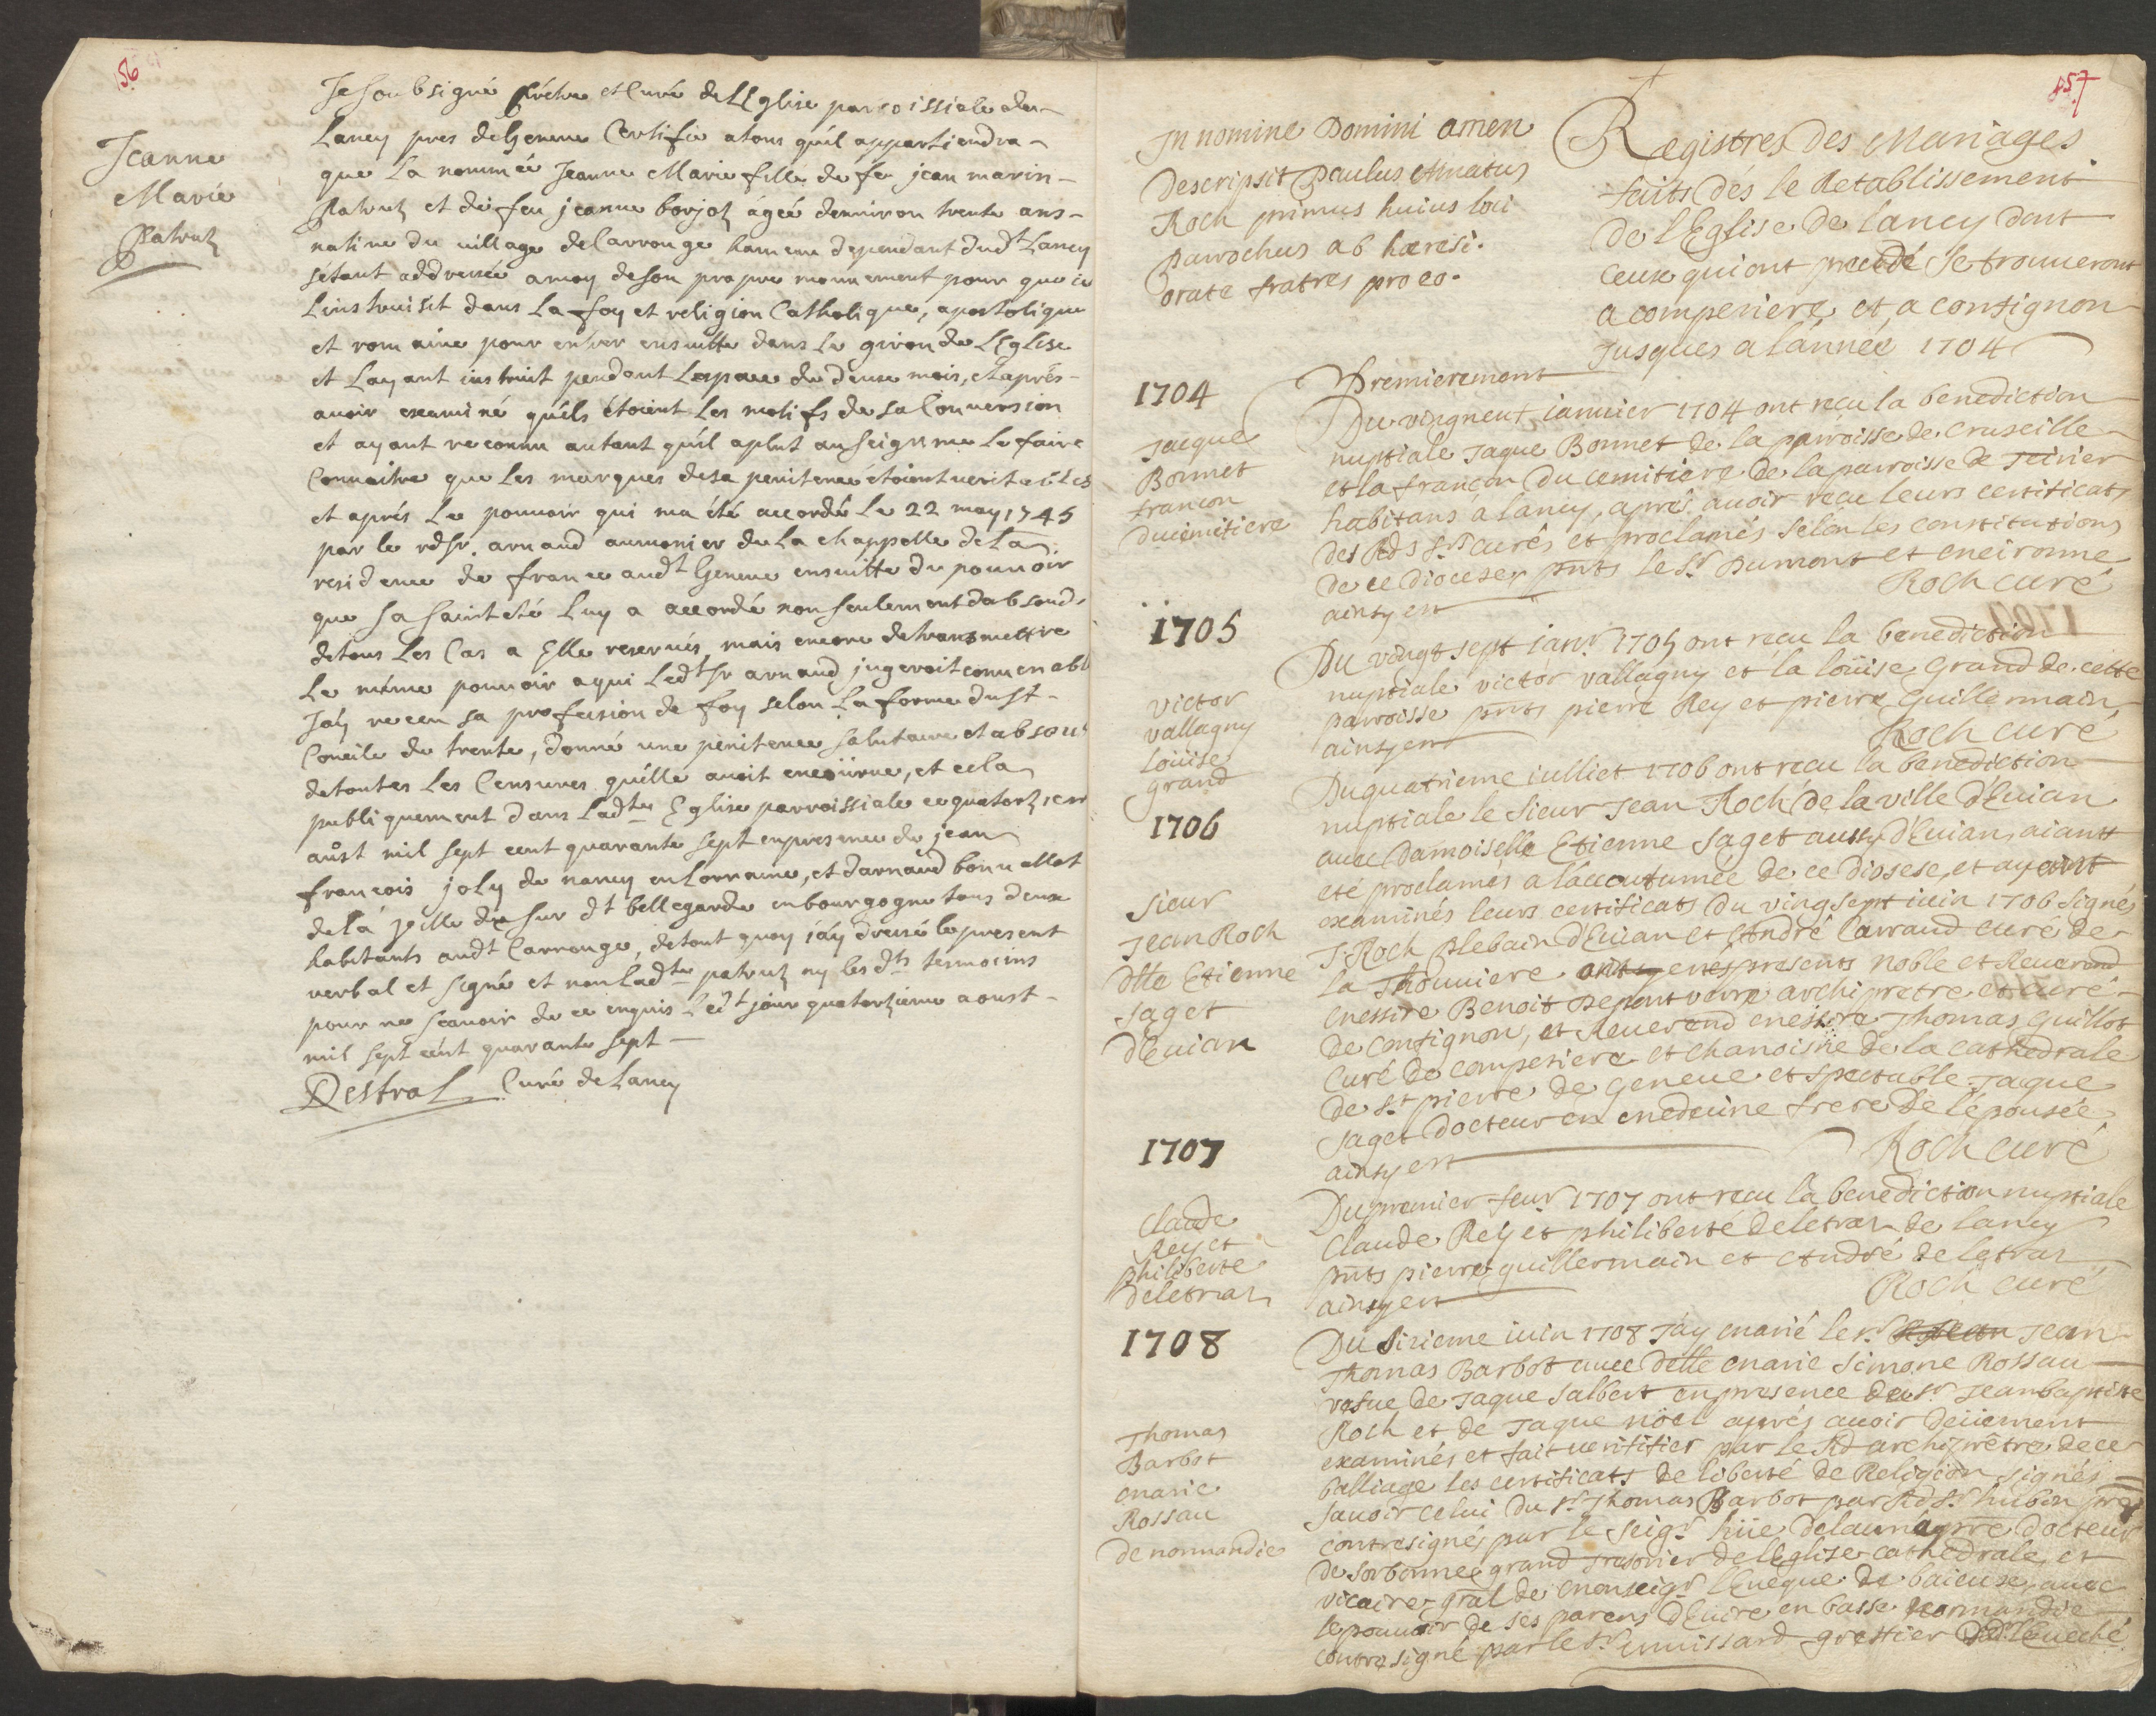 56
Jeanne
Marie
Patrut
Je soubsigné prêtre et Curé de LEglise paroissiale de
Lancy pres de Geneve Certifie a tous quíl appartiendra
que La nommée Jeanne Marie fille de feu jean marin
Patrut et de feu jeanne borjot ágeé denuiron trente ans
natiue du uillage de Carrouge hameau dependant dudt Lancy
sétant addressée a moy de son propre mouuement pour que ie
Linstruisit dans La foy et religion Catholique, apostolique
et romaine pour entrer ensuitte dans Le giron de LEglise
et Layant instruit pendant Lespace de deux mois, et aprés
auoir examiné quéls étoient Les motifs de sa Conuersion
et ayant reconnu autant quíl a plut au seigneur me Le faire
Connoitre que Les marques de sa penitence étoient ueritables
et aprés Le pouuoir qui ma été accordé Le 22 may 1745
par le rd sr. arnaud aumonier de La chappelle de La
residence de france audt Geneue ensuitte du pouuoir
que sa sainteté Luy a accordé non seulement dabsoudr
de tous Les Cas a Elle reserués, mais encore de transmettre
Le même pouuoir a qui Ledt sr arnaud jugeroit conuenable
Jáy receu sa profession de foy selon La forme du st
Concile de trente, donné une penitence salutaire et absous
de toutes Les Censures quélle auoit encoürue, et cela
publiquement dans Ladte Eglise parroissiale ce quatorziem
aust mil sept cent quarante sept en presence de jean
francois joly de nancy en Lorraine, et darnaud bonuallot
de la ville de sur dt bellegarde en bourgogne tous deux
habitants audt Carrouge, de tout quoy jáy dressé le present
verbal et signé et non Ladte patrut ny les dts temoins
pour ne scauoir de ce enquis Ledt jour quatorzieme aoust
mil sept cént quarante sept
Destral Curé de Lancy
57
In nomine Domini amen
Descripsit Paulus Amatus
Roch primus huius loci
Parochus ab hæresi.
orate fratres pro eo.
Registres des Mariages
faits dés le Retablissement
de l'Eglise de lancy dont
ceux qui ont precedé se trouueront
a compesiere et a confignon
Jusques a l'année 1704
1704
Jaque
Bonnet
francon
Ducimitiere
Premierement
Du vingneuf ianuier 1704 ont reçu la benediction
nuptiale Jaque Bonnet de la parroisse de cruseille
et la francon Du cemitiere de la parroisse de
habitans à lancy, aprés auoir reçu leurs certificats
des Rds Srs curés et proclamés selon les constitutions
de ce Diocese, pnts le Sr Dumont et
ainsy est Roch curé
1705
victor
vallagny
loüise
grand
Du vingt sept ianr 1705 ont reçu la benediction
nuptiale victor vallagny et la loüise grand de cette
parroisse pnts pierre Rey et pierre Guillermain
ainsy est Roch curé
1706
Sieur
Jean Roch
dlle Etienne
Saget
d'Euian
Du quatrieme iulliet 1706 ont reçu la benediction
nuptiale le sieur Jean Roch de la ville d'Euian
auec Damoiselle Etienne Saget aussy d'Euian, aiant
eté proclamés a l'accoutumée de ce diosese, et ayant
examinés leurs certificats du vingsept iuin 1706 signés
J Roch plebain d'Euian et André Carraud curé de
la Thouuiere presents noble et Reuerend
Messire Benoit De pontverre archipretre et curé
de Confignon, et Reuerend Messire Thomas Guillot
curé de compesiere et chanoisne de la cathedrale
de St pierre de Geneue et spectable Jaque
Saget docteur en medecine frere de l'épousée
ainsy est Roch curé
1707
Claude
Rey et
philiberte
deletraz
Du premier feur 1707 ont reçu la benediction nuptiale
Claude Rey et philiberte deletraz de lancy
pnts pierre guillermain et André de letraz
ainsy est Roch curé
1708
Thomas
Barbot
Marie
Rossau
de normandie
Du sixieme iuin 1708 J'ay marié le sr Jean
Thomas Barbot auec delle Marie Simone Rossau
vefue de Jaque Salbert en presence du sr Jean baptiste
Roch et de Jaque nöel aprés auoir deüement
examinés et fait verifier par le Rd archiprêtre de ce
balliage les certificats de liberté de Religion signés
sauoir celui du sr Thomas Barbot par Rd sr hubon pre
contresignés par le seigr hüe delaunay pre docteur
de Sorbonne grand tresorier de l'Eglise cathedrale, et
vicaire gral de Monseigr l'Eueque de baieuse auec
le pouuoir de ses parens d'Euire en basse normandie
contresigné par le sr greffier de l'Eueché